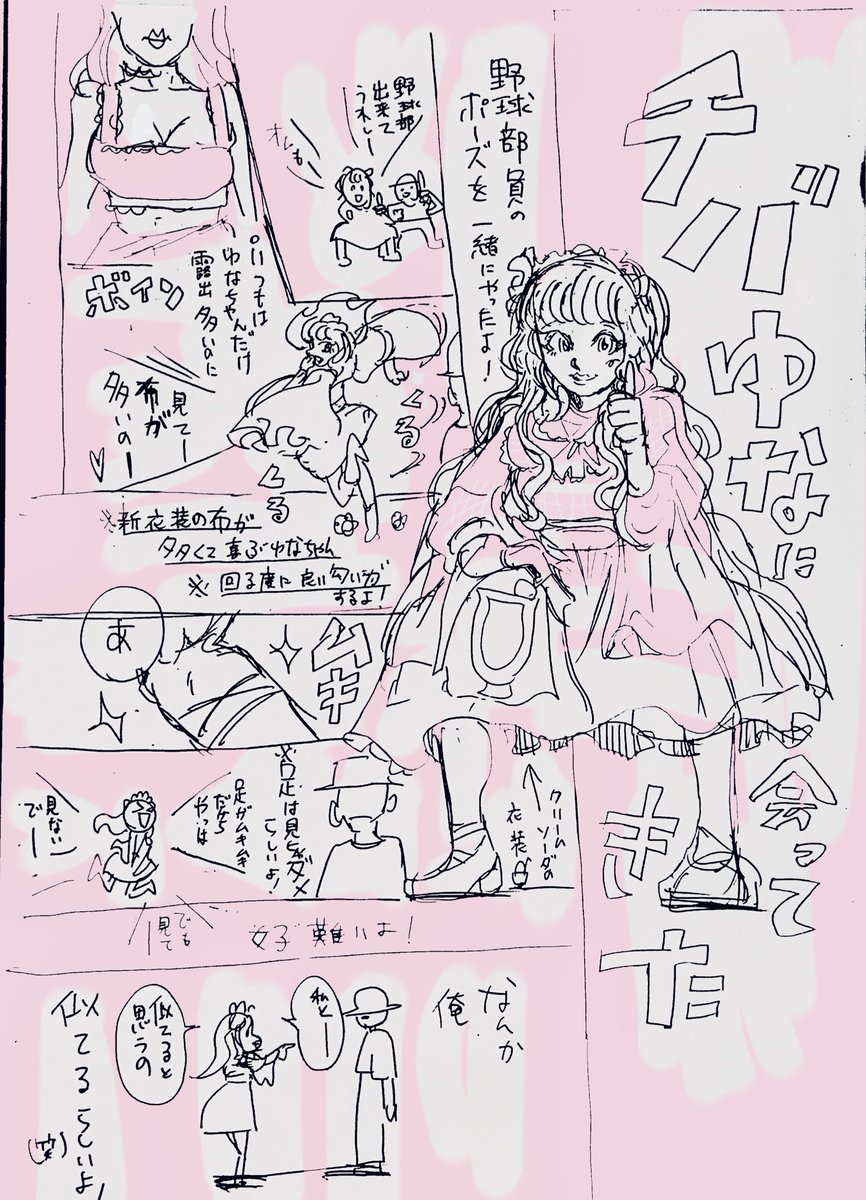 チバゆなに
会って
きた
野球部員の
ポーズを一緒にやったよ!
野球部
出来て
うれしー
オレも
いつもは
ゆなちゃんだけ
露出多いのに
ボイン
見てー
布が
多いのー
くるくる
※新衣装の布が
多くて喜ぶゆなちゃん
※回る度に良い匂いが
するよ!
ムキ
あ
クリーム
ソーダの
衣装
※足は見ちゃダメ
らしいよ!
足がムキムキ
だから
やっは
見ない
でー
でも
見て
女子難いよ!
なんか
俺
私とー
似てると
思うの
似てるらしいよ!
(笑)